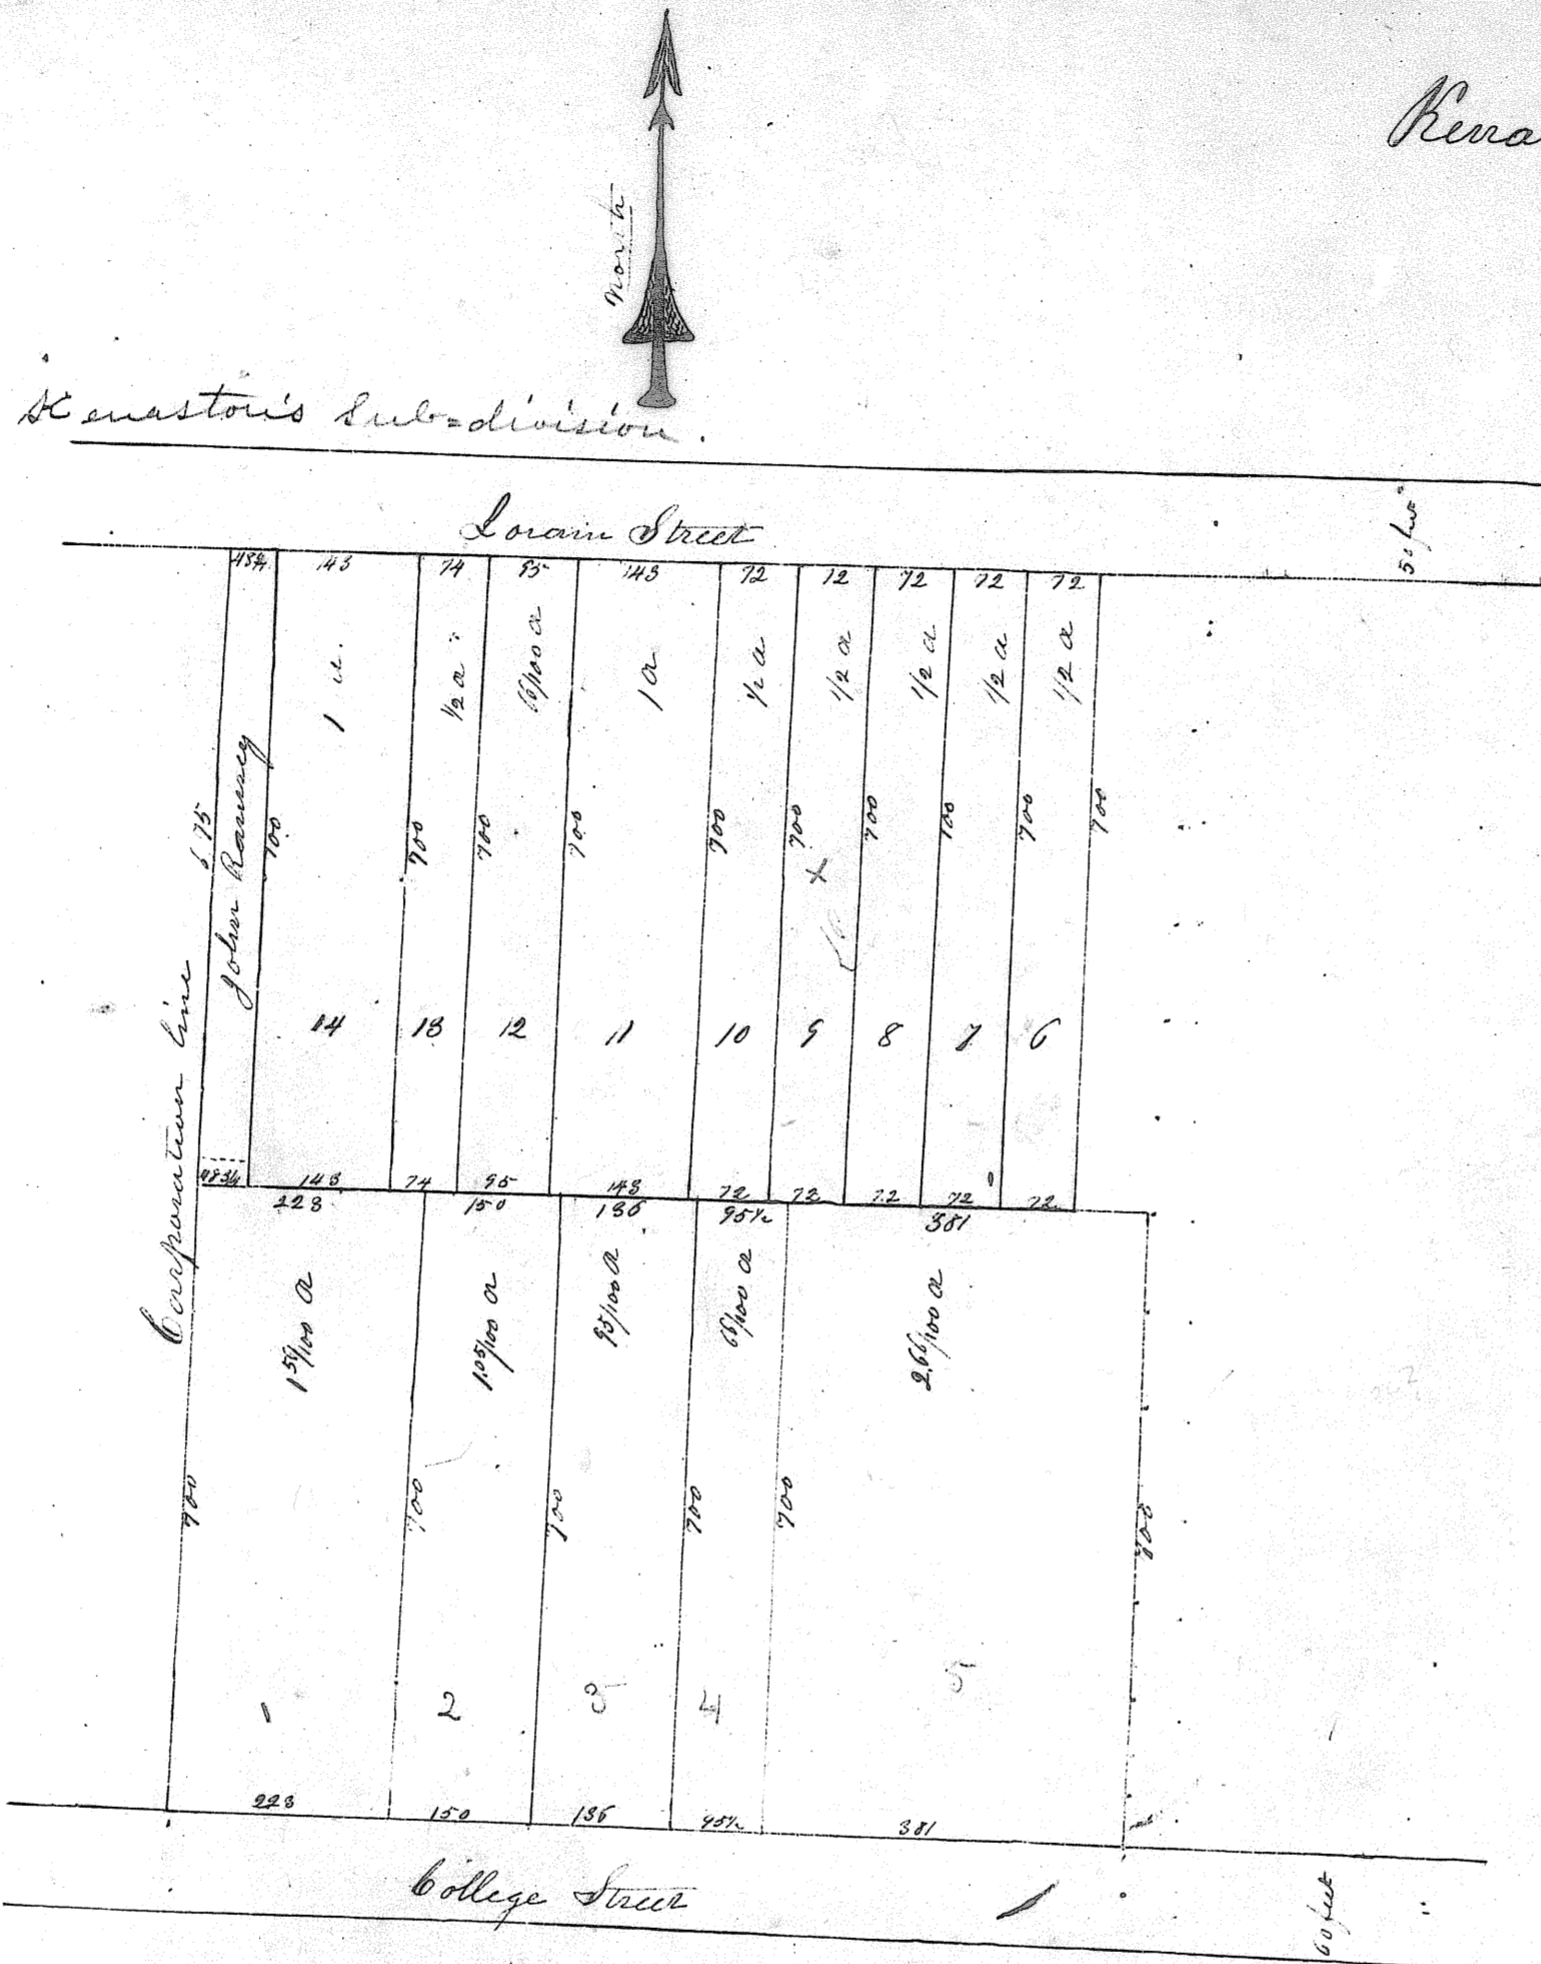 Kena
North
Kenaston's Sub=division.
Lorain Street
50 feet
48¾ 143 74 95 143 72 72 72 72 72
1 a. ½ a 66/100 a 1 a ½ a ½ a ½ a ½ a ½ a
675 John Ramsey 700 700 700 700 700 700 700 700 700 700
X
Corporation line
14 13 12 11 10 9 8 7 6
48¾ 143 74 95 143 72 72 72 72 72
223 150 136 95½ 381
1 59/100 a 1.05/100 a 95/100 a 66/100 a 2.66/100 a
700 700 700 700 700 700
1 2 3 4 5
223 150 136 95½ 381
College Street
60 feet